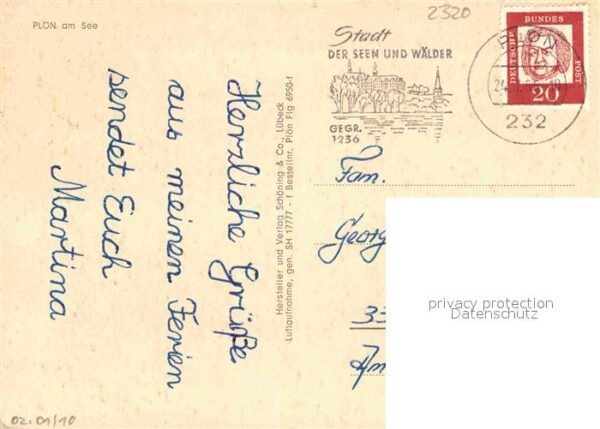 2320
PLÖN am See
Stadt
DER SEEN UND WÄLDER
GEGR.
1236
PLÖN
232
DEUTSCHE BUNDES POST
20
Herzliche Grüße
aus meinen Ferien
sendet Euch
Martina
Hersteller und Verlag Schöning & Co., Lübeck
Luftaufnahme, gen. SH 17777 - 1 Bestellnr. Plön Flg 6950-f
Fam.
Georg
privacy protection
Datenschutz
02.01/10